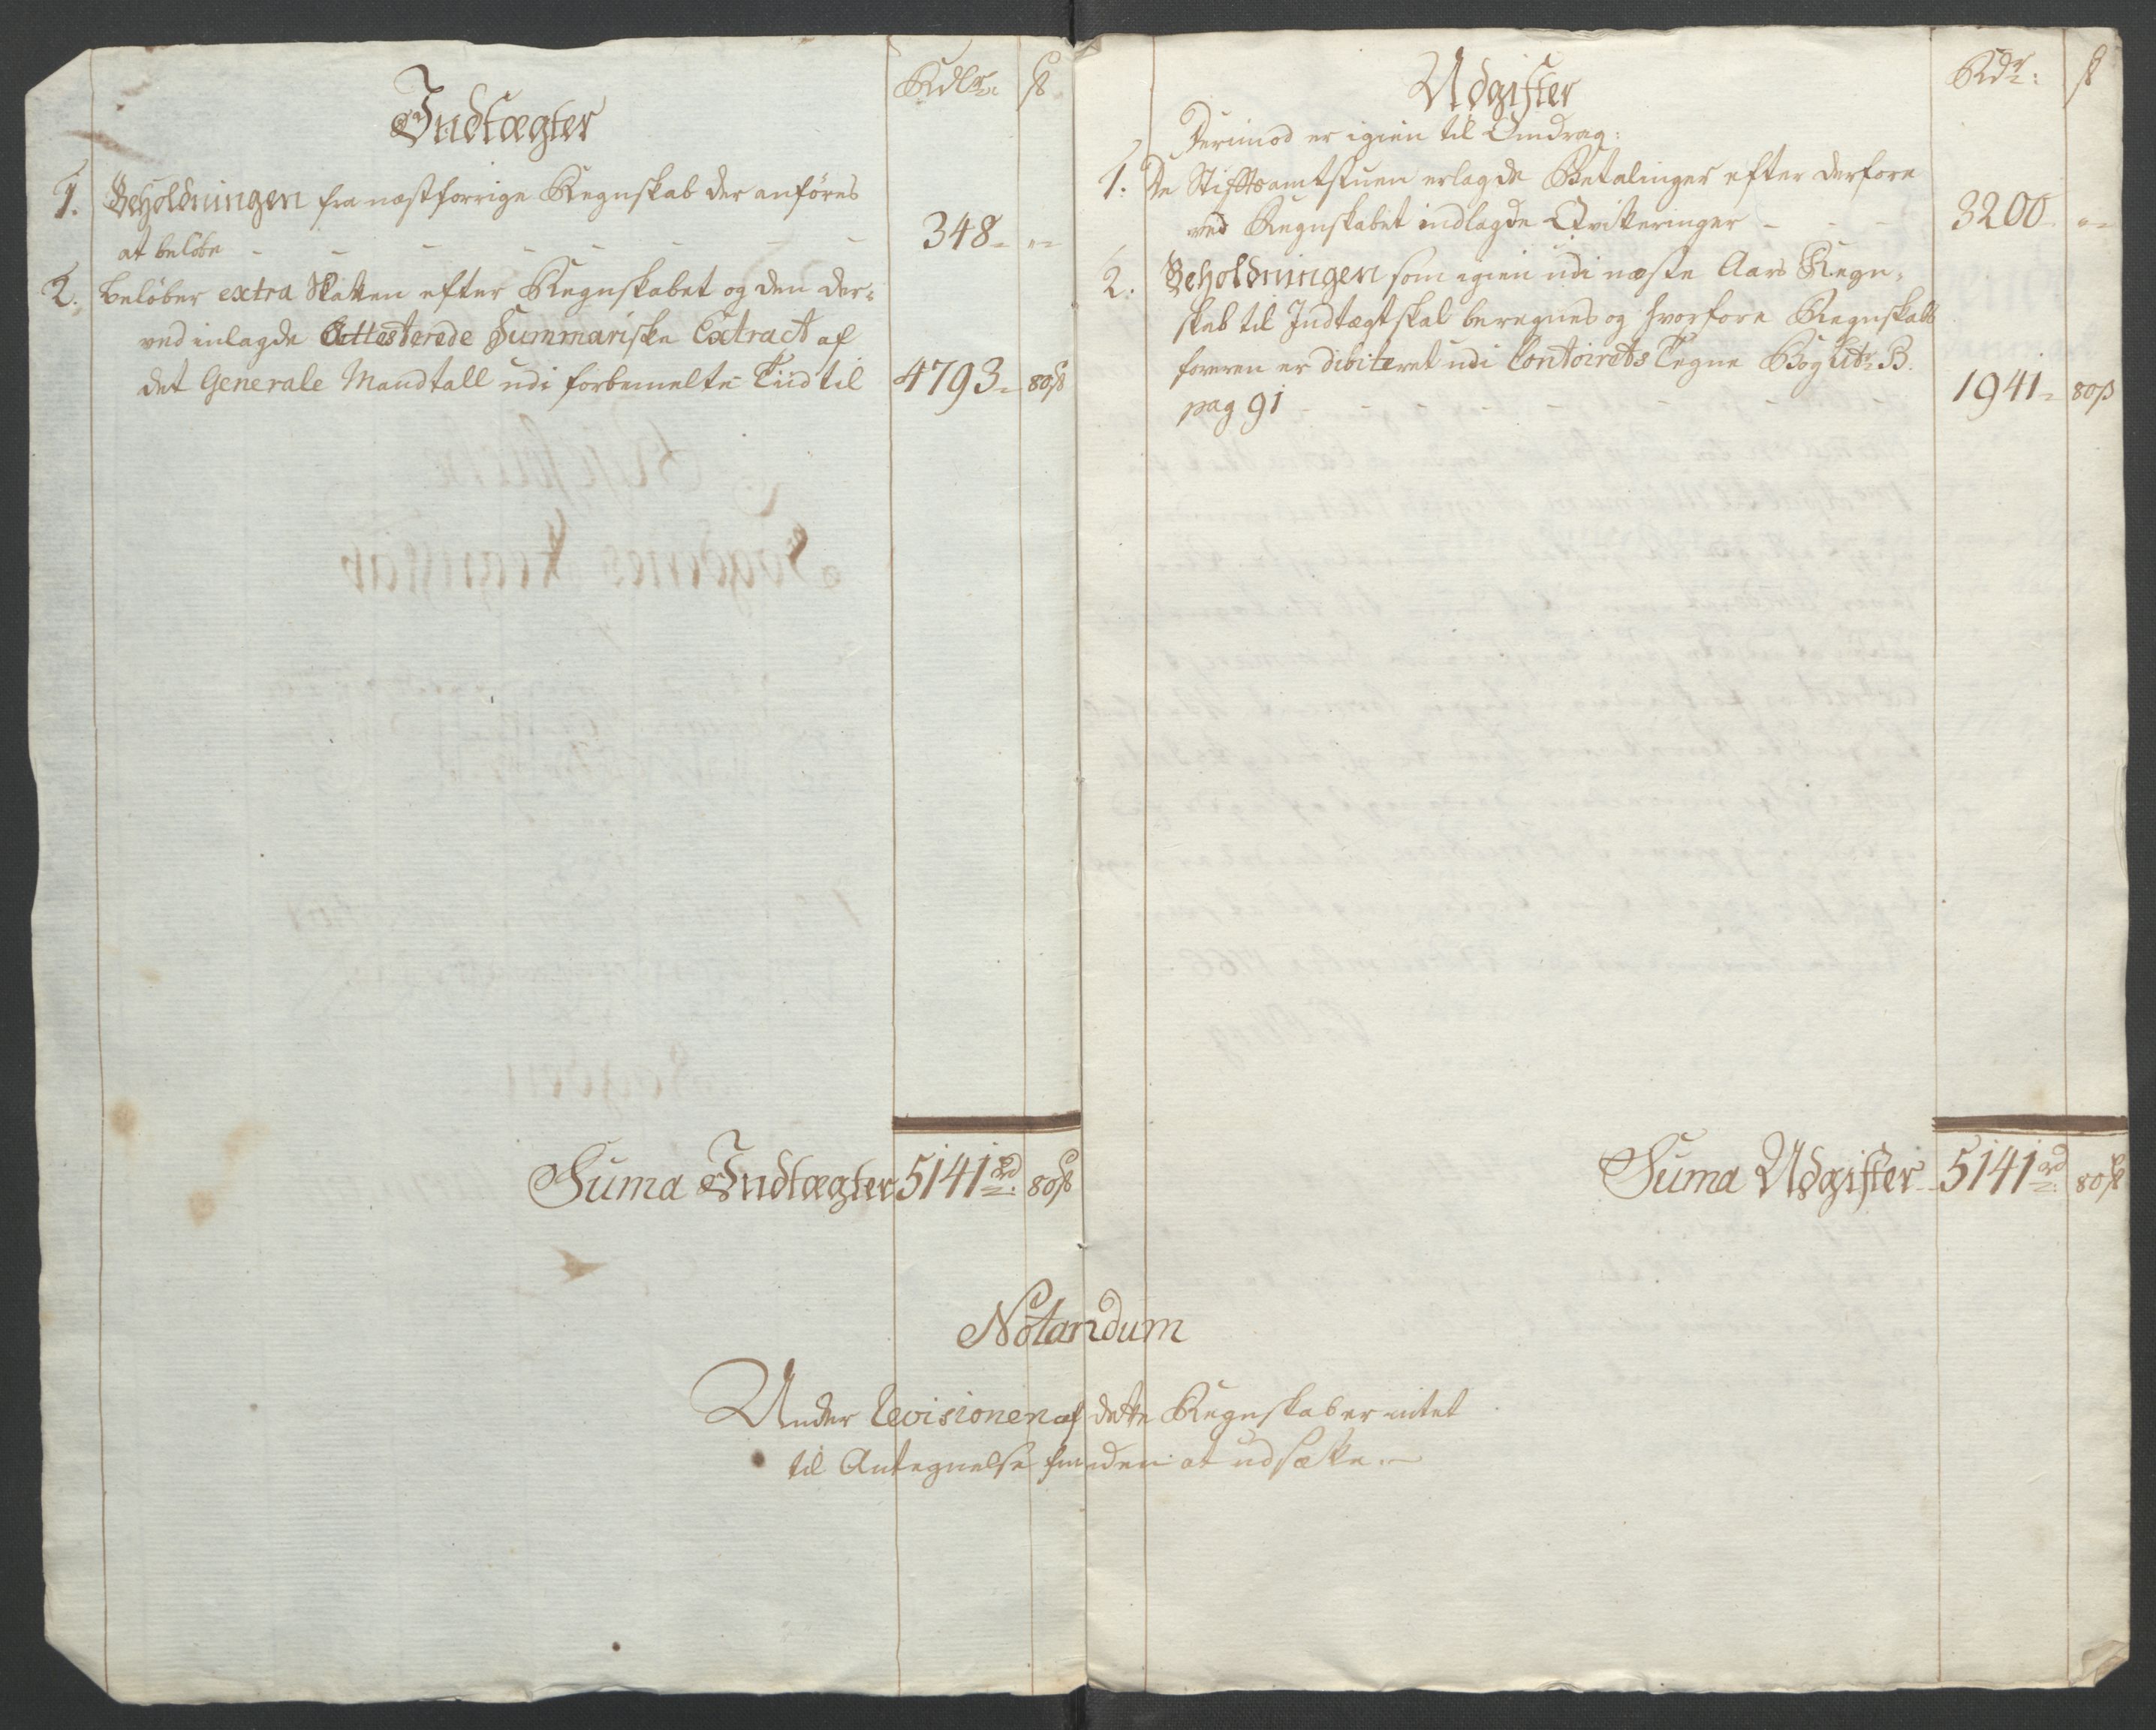 Indtægter
Rdlr: ß
1. Beholdningen fra næstforrige Regnskab der anføres
at beløbe - - - - - - - 348 - " -
2. Beløber extra Skatten efter Regnskabet og den der-
ved inlagde Attesterede Summariske Extract af
det Generale Mandtall udi forbemelte Tiid til 4793 - 80ß
Suma Indtægter 5141rd: 80ß
Udgifter
Rdr: ß
Derimod er igien til Omdrag:
1. De Stiftsamtstuen erlagde Betalinger efter derfore
ved Regnskabet indlagde Qvitteringer - - - 3200 - " -
2. Beholdningen som igien udi næste Aars Regn-
skab til Indtægt skal beregnes og hvorfore Regnskabs
foreren er dibiteret udi Contoirets Tegne Bog Litr: B.
pag 91 - - - - - - 1941 - 80ß
Suma Udgifter 5141rd: 80ß
Notandum
Under Revisionen af dette Regnskab er intet
til Antegnelse funden at udsætte. -